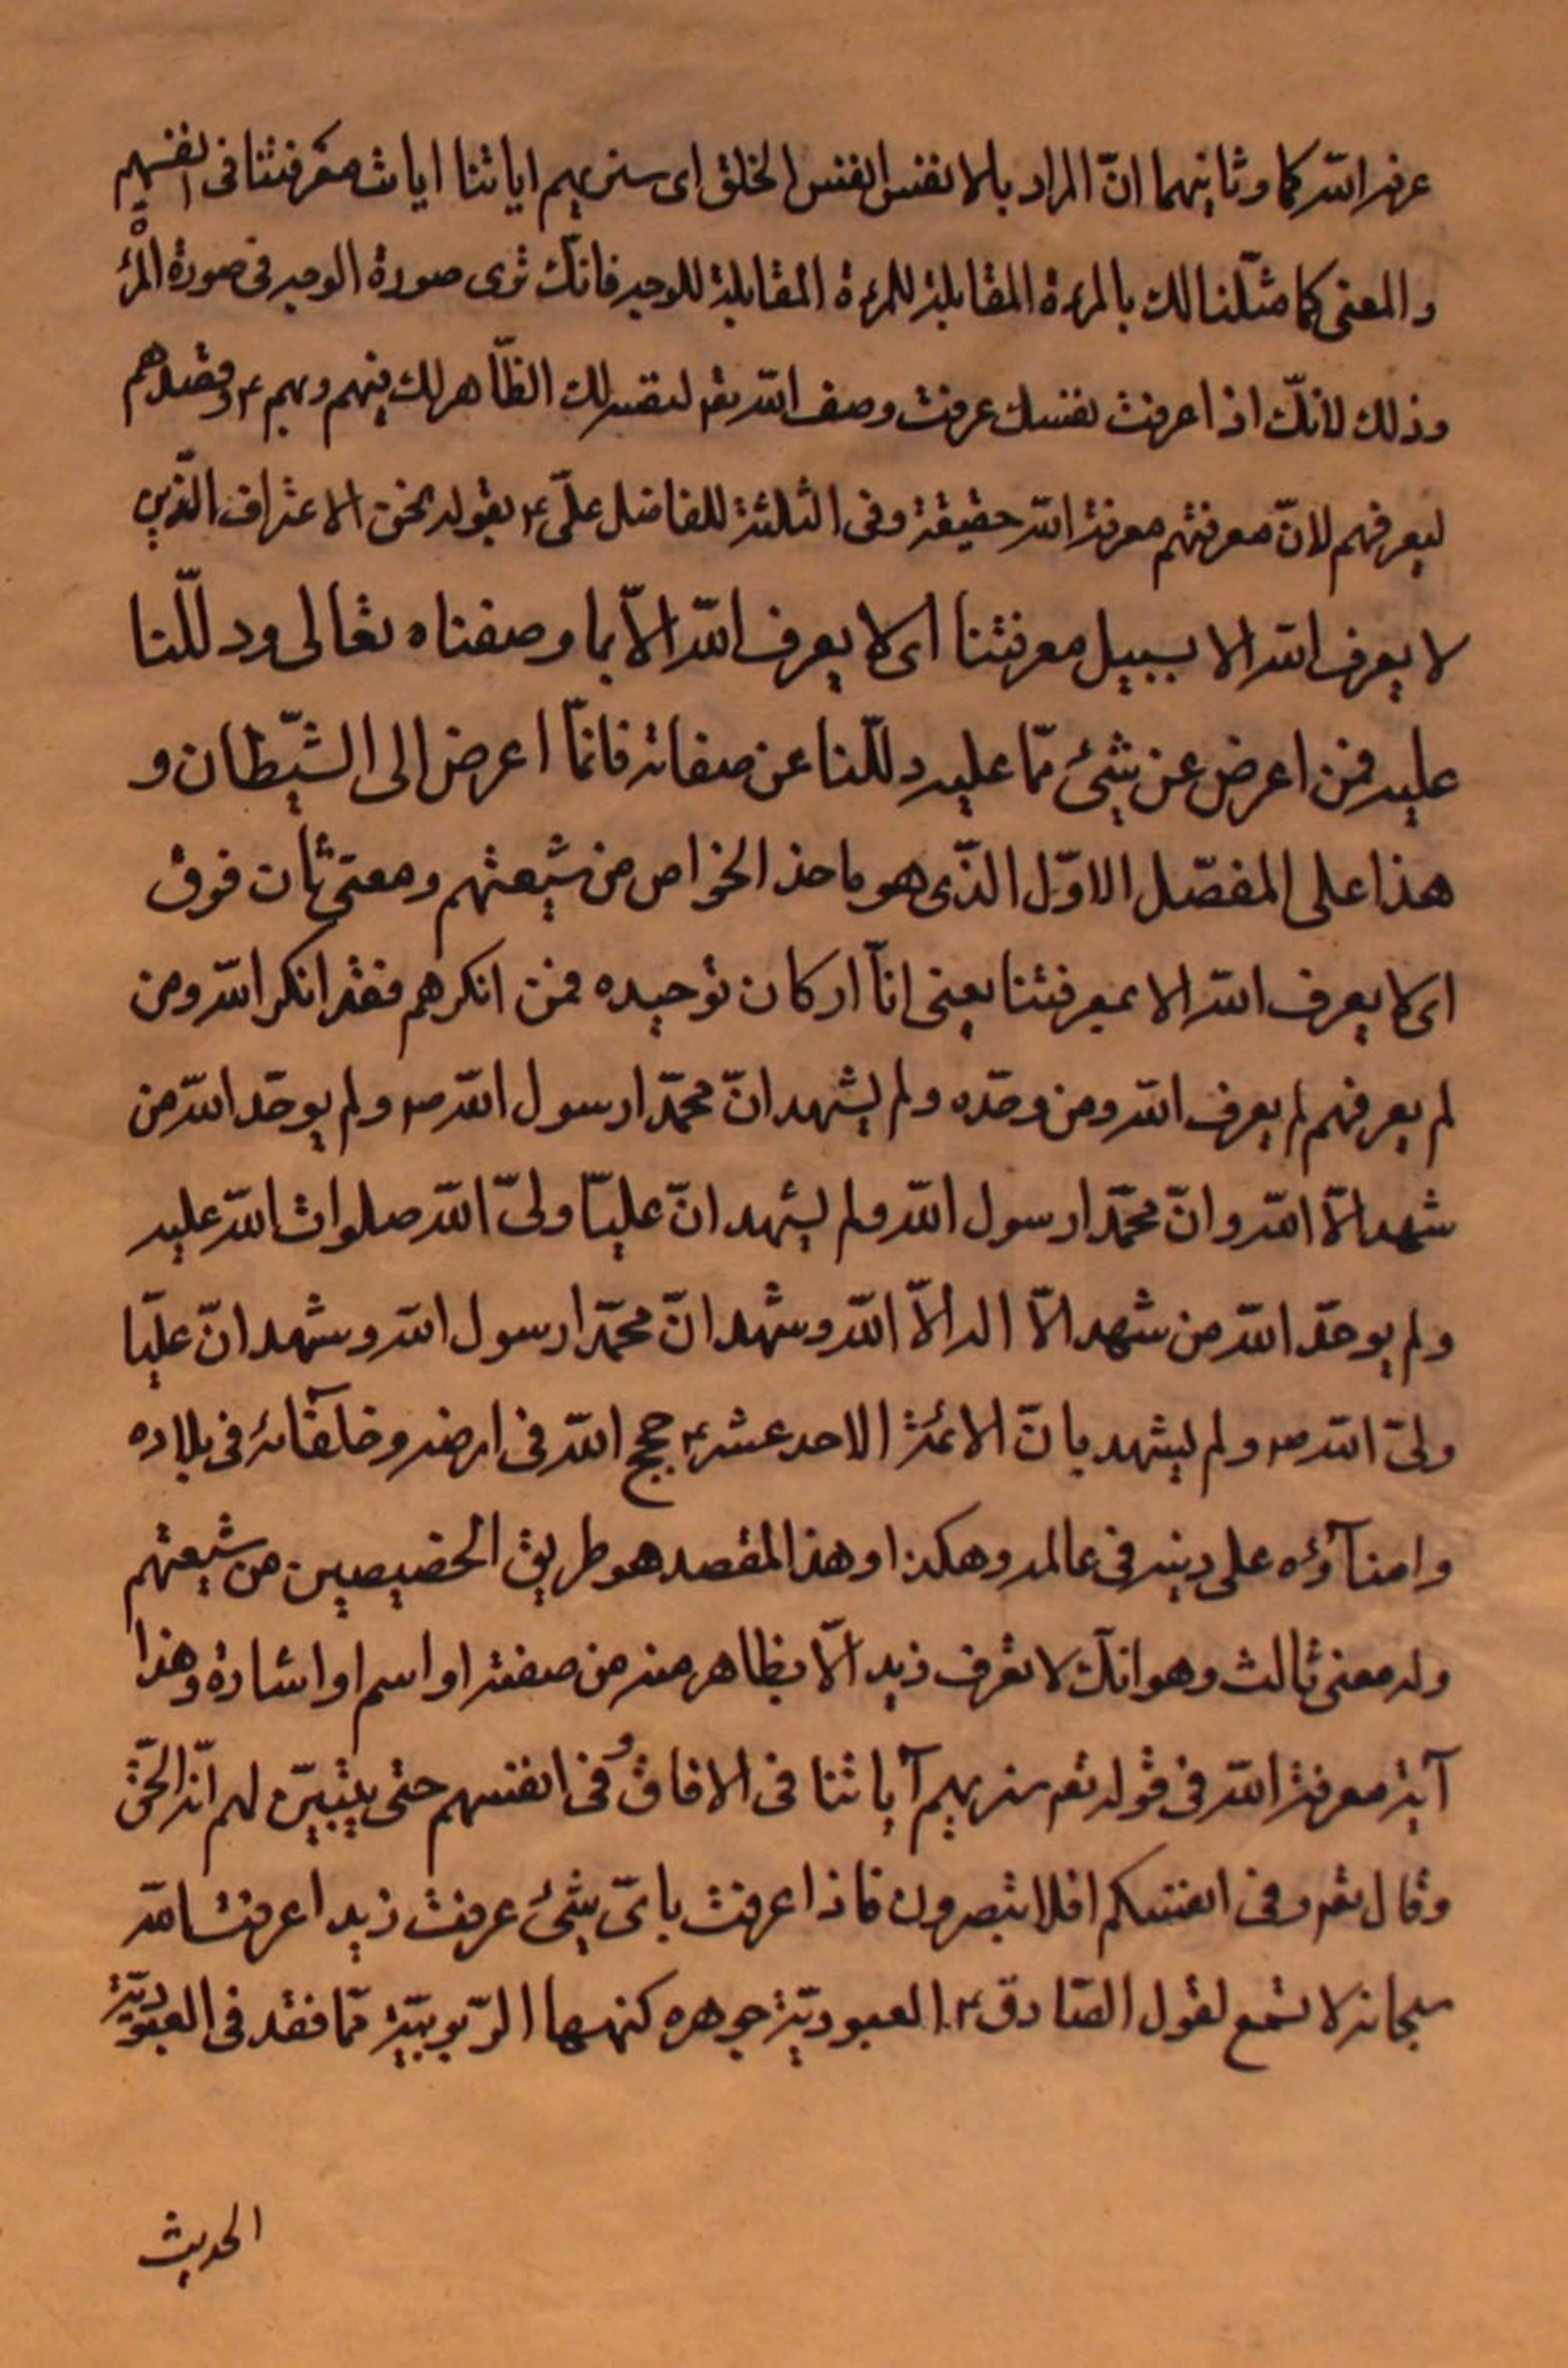 عرفه الله كما وثانيهما انّ المراد بالانفس انفس الخلق اى سنريهم اياتنا ايات معرفتنا فى انفسهم
والمعنى كما مثّلنا لك بالمرءة المقابلة للمرءة المقابلة للوجه فانّك ترى صورة الوجه فى صورة المرءة
وذلك لانّك اذا عرفت نفسك عرفت وصف الله تع لنفسه لك الظّاهر لك فيهم وبهم ع وقصدهم
ليعرفهم لانّ معرفتهم معرفة الله حقيقة وفى الثلثة للفاضل علىّ ع بقوله نحن الاعتراف الّذين
لا يعرف الله الا بسبيل معرفتنا اى لا يعرف الله الاّ بما وصفناه تعالى ودللّنا
عليه فمن اعرض عن شئ ممّا عليه دللّنا عن صفاته فانمّا اعرض الى الشّيطان و
هذا على المفصّل الاوّل الذّى هو ماخذ الخواص من شيعتهم ومعنى ثان فوق
اى لا يعرف الله الا بمعرفتنا يعنى انّا اركان توحيده فمن انكرهم فقد انكر الله ومن
لم يعرفهم لم يعرف الله ومن وحّده ولم يشهد انّ محمّدا رسول الله ص ولم يوحّد الله من
شهد الاّ الله وانّ محمّدا رسول الله ولم يشهد انّ عليّا ولىّ الله صلوات الله عليه
ولم يوحّد الله من شهد الاّ اله الاّ الله وشهد انّ محمّدا رسول الله وشهد انّ عليّا
ولىّ الله ص ولم يشهد بانّ الائمّة الاحد عشر ع حجج الله فى ارضه وخلفآئه فى بلاده
وامنآؤه على دينه فى عالمه وهكذا وهذا المقصد هو طريق الخصيصين من شيعتهم
وله معنى ثالث وهو انّك لا تعرف زيد الاّ بظاهر منه من صفته او اسم او اشارة وهذا
آية معرفة الله فى قوله تع سنريهم آياتنا فى الافاق وفى انفسهم حتى يتبيّن لهم انّه الحقّ
وقال تع وفى انفسكم افلا تبصرون فاذا عرفت باىّ شئ عرفت زيدا عرفت الله
سبحانه لا تسمع لقول الصّادق ع العبوديّة جوهره كنهها الرّبوبيّة فما فقد فى العبوديّة
الحديث